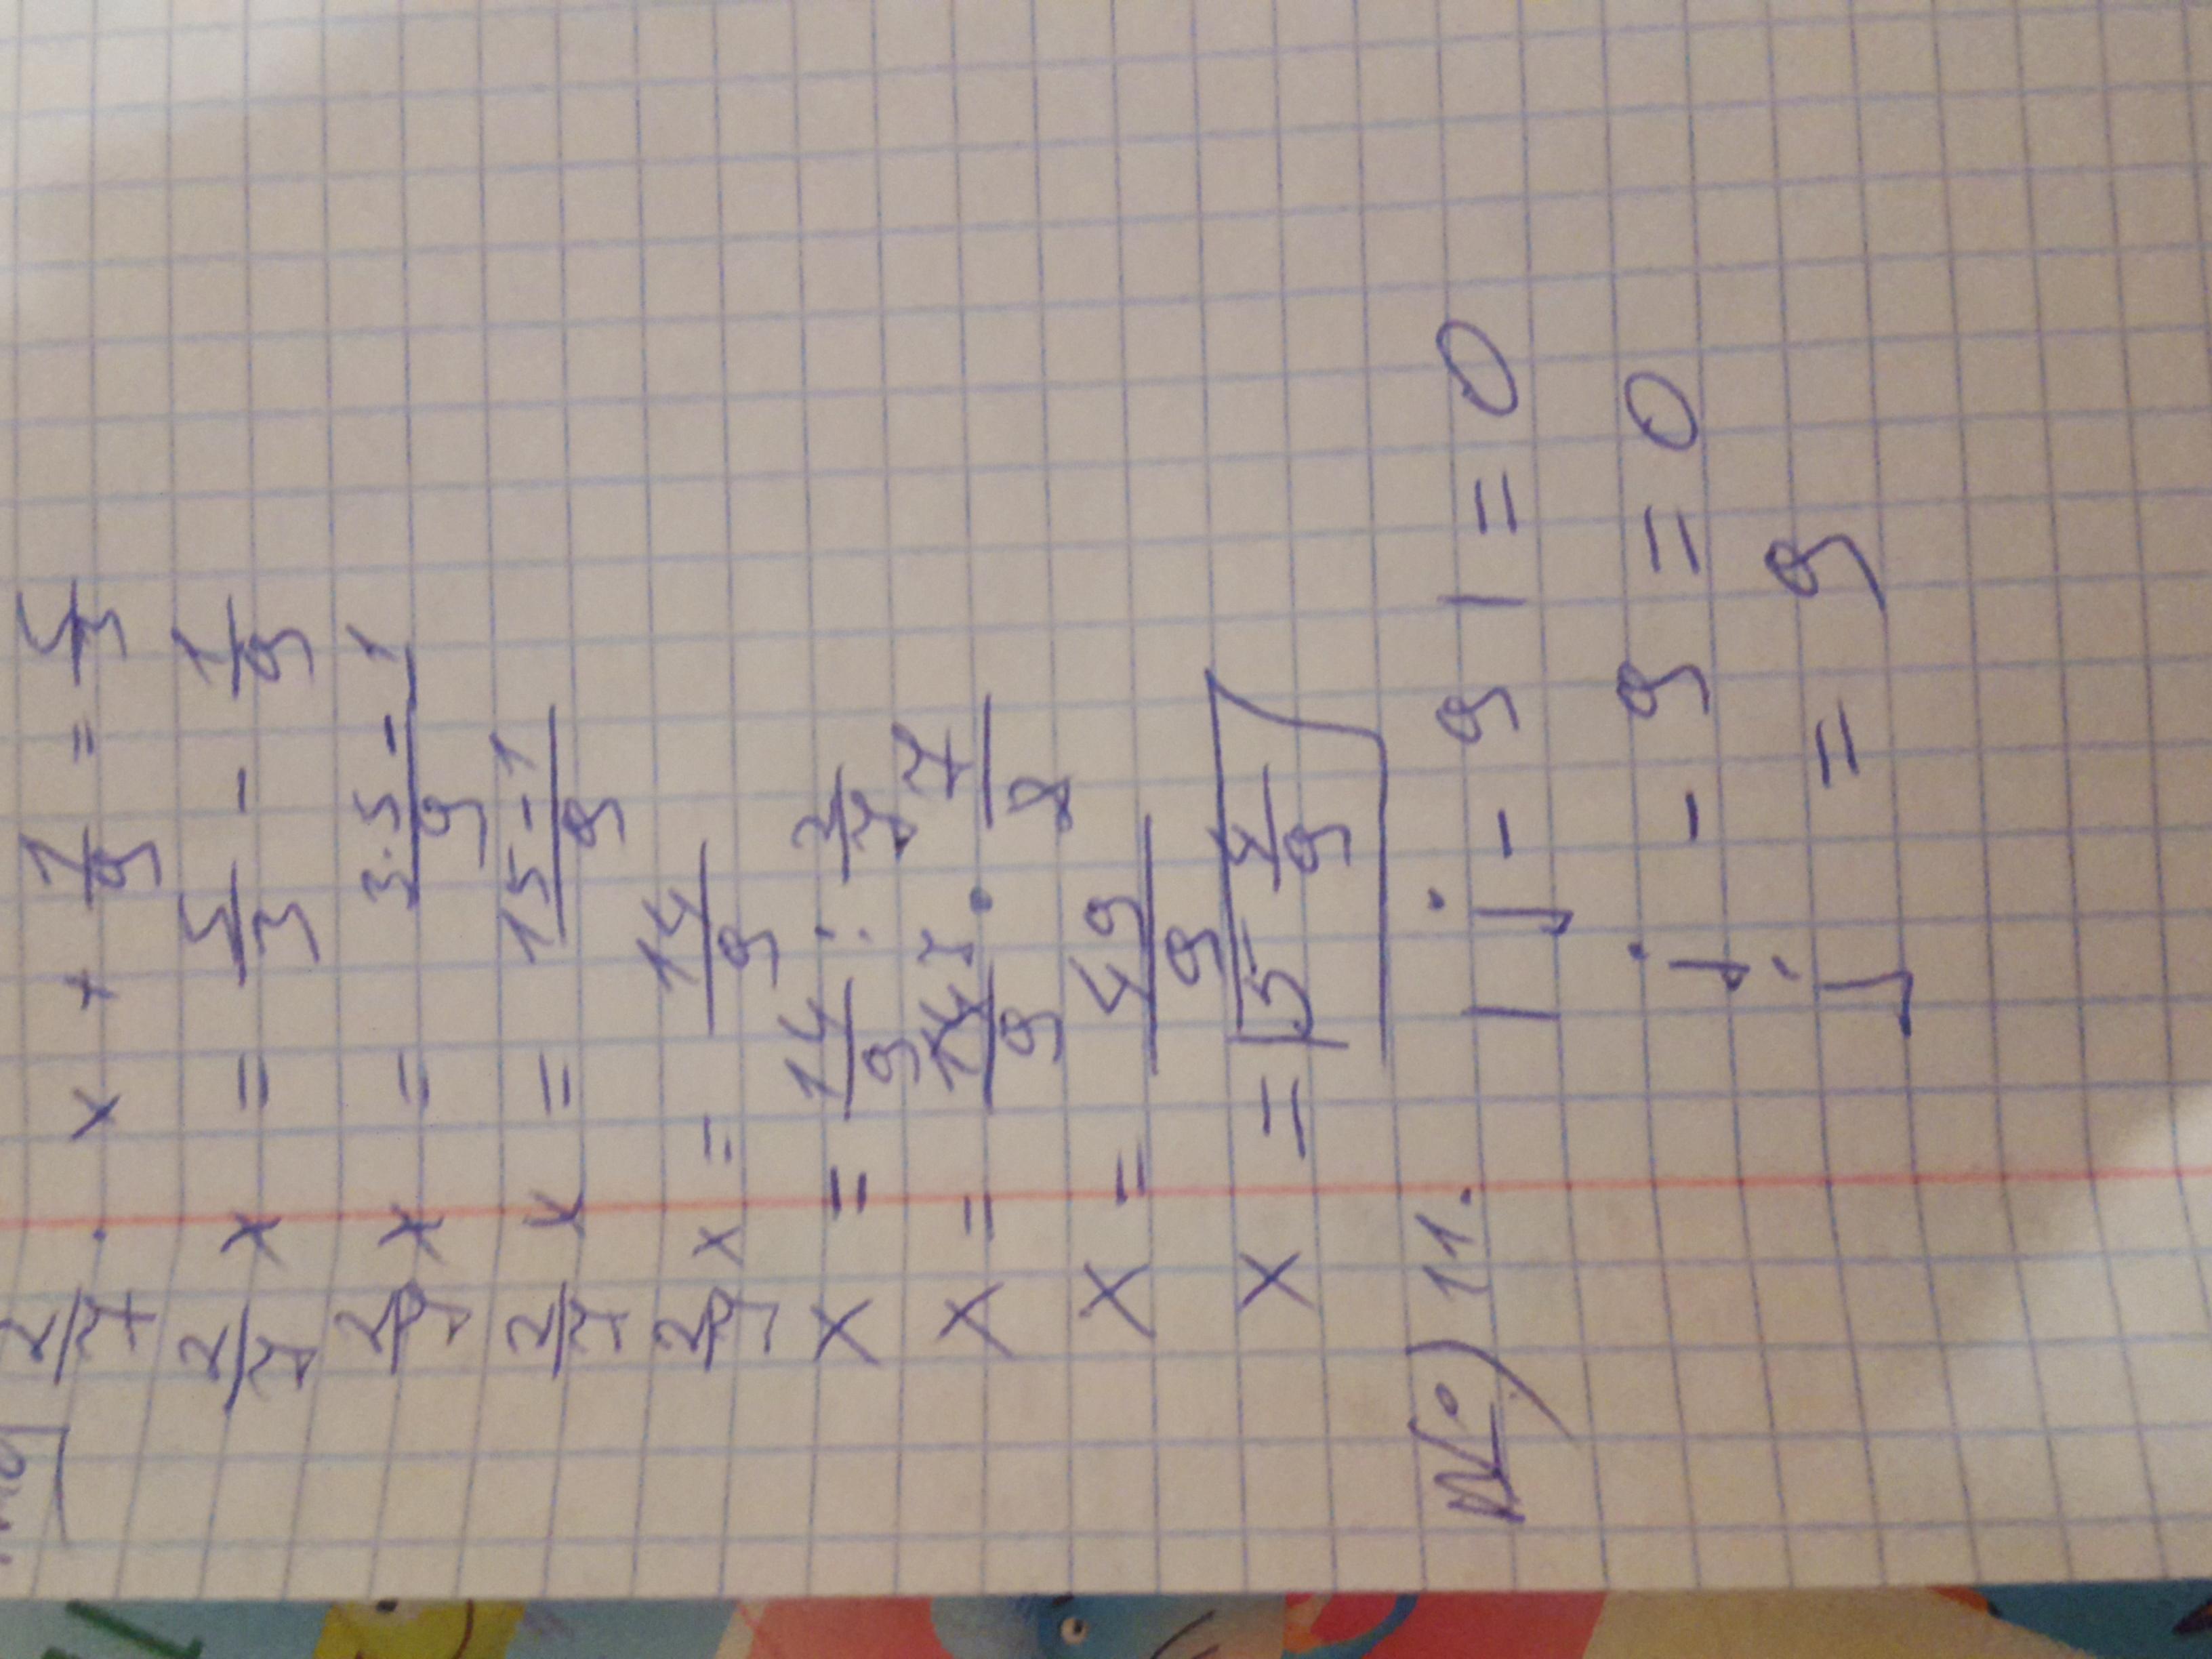 2/7 · x + 1/9 = 5/3
2/7 x = 5/3 - 1/9
2/7 x = 3·5-1/9
2/7 x = 15-1/9
2/7 x = 14/9
x = 14/9 : 2/7
x = 14/9 · 7/2
x = 49/9
x = 5 4/9
№) 11. |j - 9| = 0
j - 9 = 0
j = 9